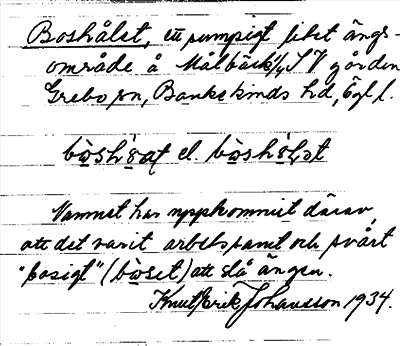 Boshålet, ett sumpigt litet ängs-
område å Målbäck 1/4 S V gården
Grebo sn, Bankekinds hd, Ögl.
bòsh'ōat el. bòsh'ōlət
Namnet har uppkommit därav,
att det varit arbetsamt och svårt
"bosigt" (bòset) att slå ängen.
Knut Erik Johansson 1934.